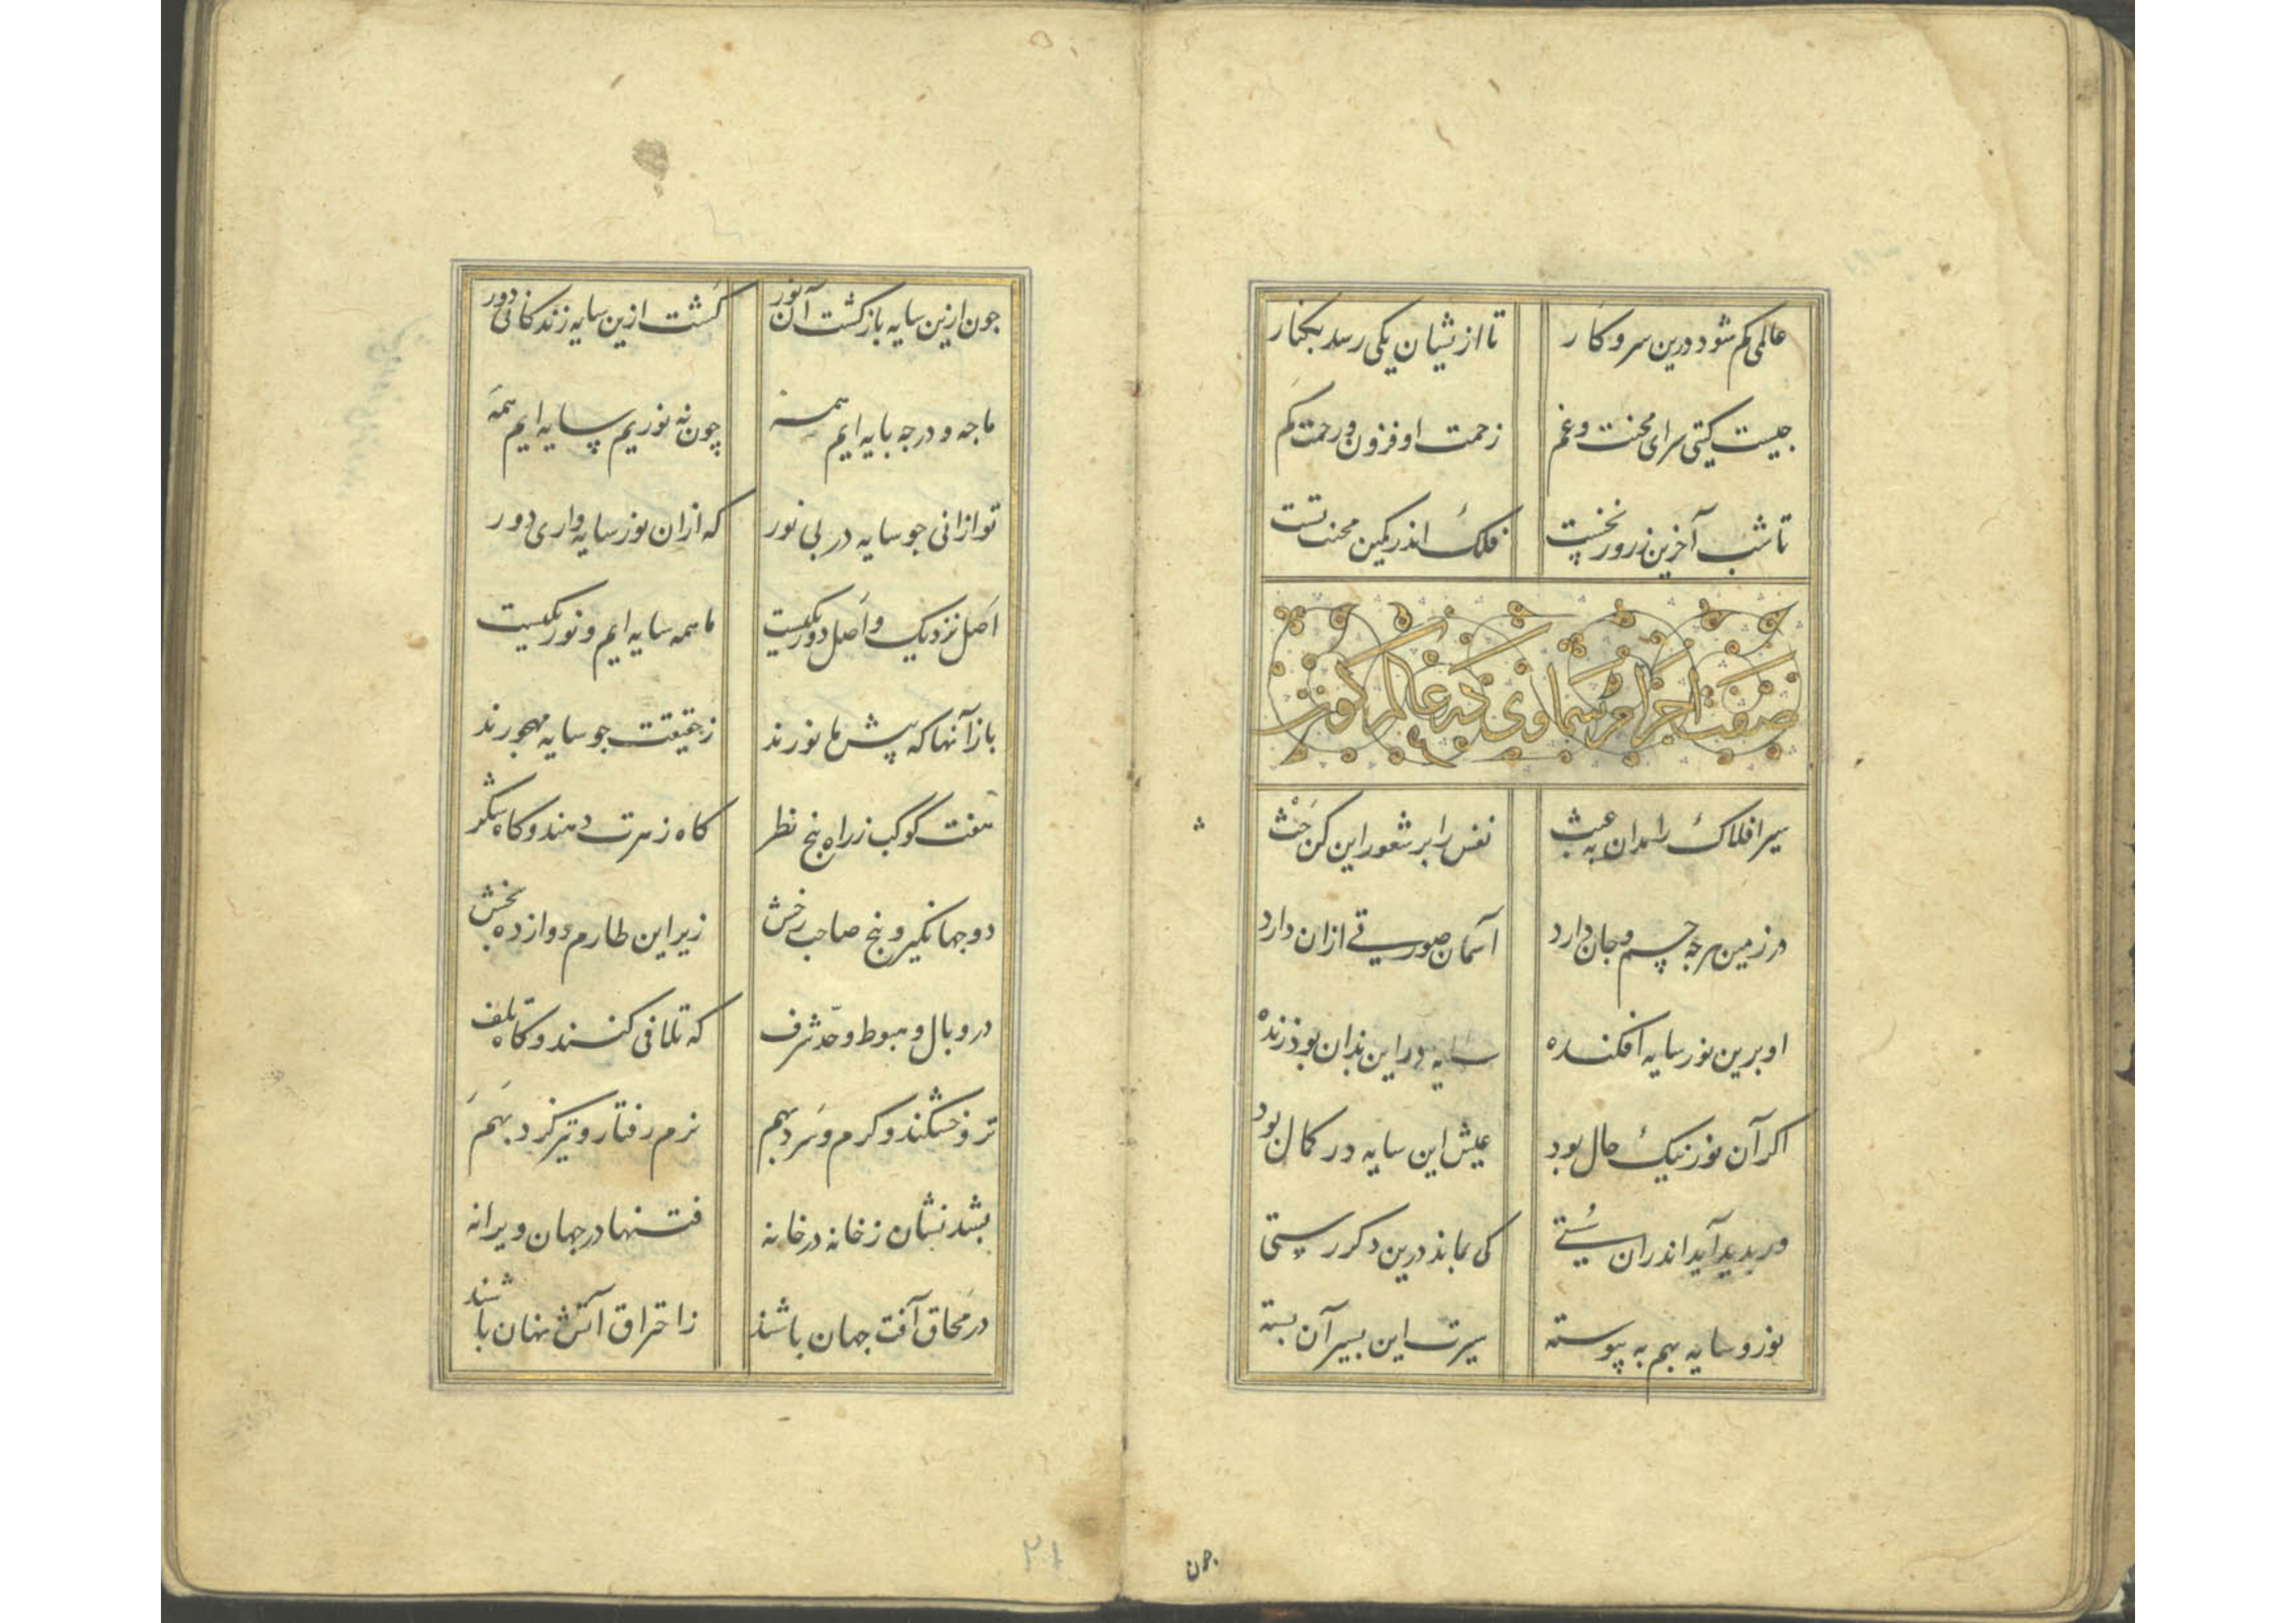 عالمی کم شود درین سر و کار تا ازیشان یکی رسد بکنار
جیست کیتی سرای محنت و غم زحمت او فزون و رحمت کم
تا شب آخرین ز روز نخست فلک اندر کمین محنت تست
صفت اجرام سماوی که عالم کون
سیر افلاک را مدان به عبث نفس را بر شعور این کن حث
در زمین هرچه جسم و جان دارد آسمان صورتی ازان دارد
او برین نور سایه افکنده سایه در این بدان بود زنده
اکر آن نور نیک حال بود عیش این سایه در کمال بود
ور پدید آید اندران سستی کی بماند درین دکر رستی
نور و سایه بهم به پیوسته سیرت این بسیر آن بسته
جون
جون ازین سایه بازکشت آن نور کشت ازین سایه زندکانی دور
ما جه و درجه پایه ایم همه چون نه نوریم سایه ایم همه
تو ازانی جو سایه در بی نور که ازان نور سایه واری دور
اصل نزدیک و اصل دور یکیست ما همه سایه ایم و نور یکیست
باز آنها که پیش ما نورند ز حقیقت جو سایه مهجورند
هفت کوکب ز راه پنج نظر کاه زهرت دهند و کاه شکر
دو جهانکیر و پنج صاحب رخش زیر این طارم دوازده بخش
در وبال و هبوط و حد شرف که تلافی کنند و کاه تلف
تر و خشکند و کرم و سرد بهم نرم رفتار و تیزکرد بهم
بشدنشان ز خانه در خانه فتنها در جهان ویرانه
در محاق آفت جهان باشند ز احتراق آتش نهان باشند
۲۱